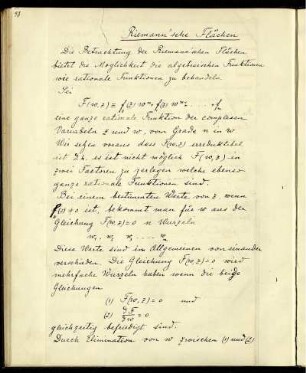 Riemann'sche Flächen
Die Betrachtung der Riemann'schen Flächen
bietet die Möglichkeit die algebraischen Funktionen
wie rationale Funktionen zu behandeln.
Sei
F(w,z) =
eine ganz rationale Funktion der complexen
Variabeln z und w, vom Grade n in w
Wir sehen voraus dass F(w,z) irreducibel
ist D.h. es ist nicht möglich F(w,z) in
zwei Factoren zu zerlegen welche ebenso
ganze rationale Funktionen sind.
Bei einem bestimmten Werte von z wenn
≠ 0 ist, bekommt man für w aus der
Gleichung F(w,z)=0 n Wurzeln
w₁ w₂ w₃ ... wₙ
Diese Werte sind im Allgemeinen von einander
verschieden. Die Gleichung F(w,z)=0 wird
mehrfache Wurzeln haben wenn die beide
Gleichungen
(1) F(w,z)=0 und
(2) ∂F/∂w = 0
gleichzeitig befriedigt sind.
Durch Elimination von w zwischen (1) und (2)